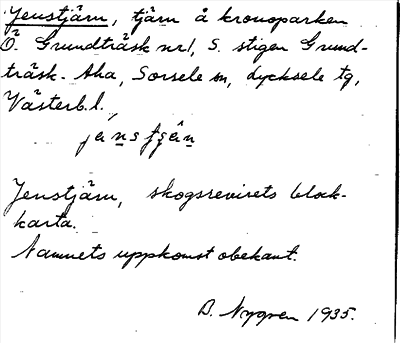 Jenstjärn, tjärn å kronoparken
Ö. Grundträsk nr 1, S. stigen Grund-
träsk - Aha, Sorsele sn, Lycksele tg,
Västerb. l.
Jenstjärn, skogsrevirets block-
karta.
Namnets uppkomst obekant.
B. Nygren 1935.